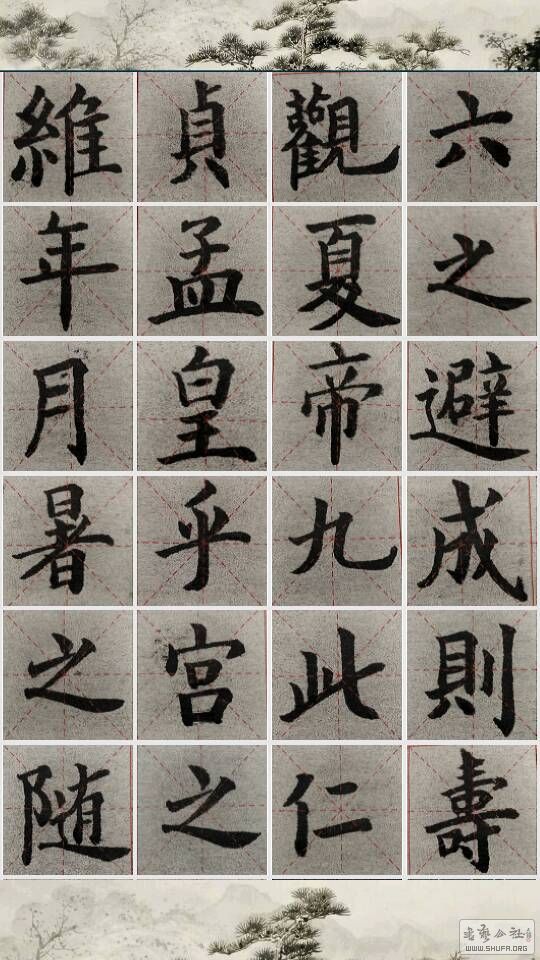 維貞觀六
年孟夏之
月皇帝避
暑乎九成
之宮此則
随之仁壽
WWW.SHUFA.ORG